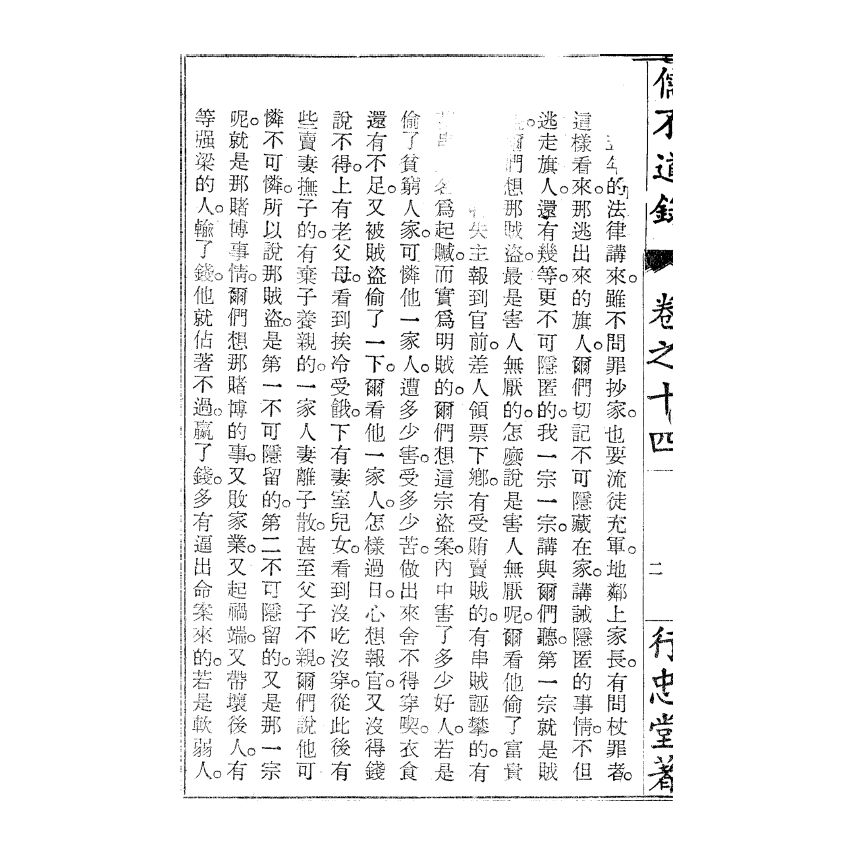 不道錄 卷之十四 二 行忠堂著
年的法律講來。雖不問罪抄家。也要流徒充軍。地鄰上家長。有問杖罪者。
這樣看來。那逃出來的旗人。爾們切記不可隱藏在家。講誡隱匿的事情。不但
逃走旗人。還有幾等。更不可隱匿的。我一宗一宗。講與爾們聽。第一宗就是賊
爾們想那賊盜。最是害人無厭的。怎麼說是害人無厭呢。爾看他偷了富貴
失主報到官前。差人領票下鄉。有受賄賣賊的。有串賊誣攀的。有
名爲起贓。而實爲明賊的。爾們想這宗盜案。內中害了多少好人。若是
偷了貧窮人家。可憐他一家人。遭多少害。受多少苦。做出來舍不得穿喫。衣食
還有不足。又被賊盜偷了一下。爾看他一家人。怎樣過日。心想報官。又沒得錢
說不得。上有老父母。看到挨冷受餓。下有妻室兒女。看到沒吃沒穿。從此後有
些賣妻撫子的。有棄子養親的。一家人妻離子散。甚至父子不親。爾們說他可
憐不可憐。所以說那賊盜。是第一不可隱留的。第二不可隱留的。又是那一宗
呢。就是那賭博事情。爾們想那賭博的事。又敗家業。又起禍端。又帶壞後人。有
等强梁的人。輸了錢。他就估著不過。贏了錢。多有逼出命案來的。若是軟弱人。